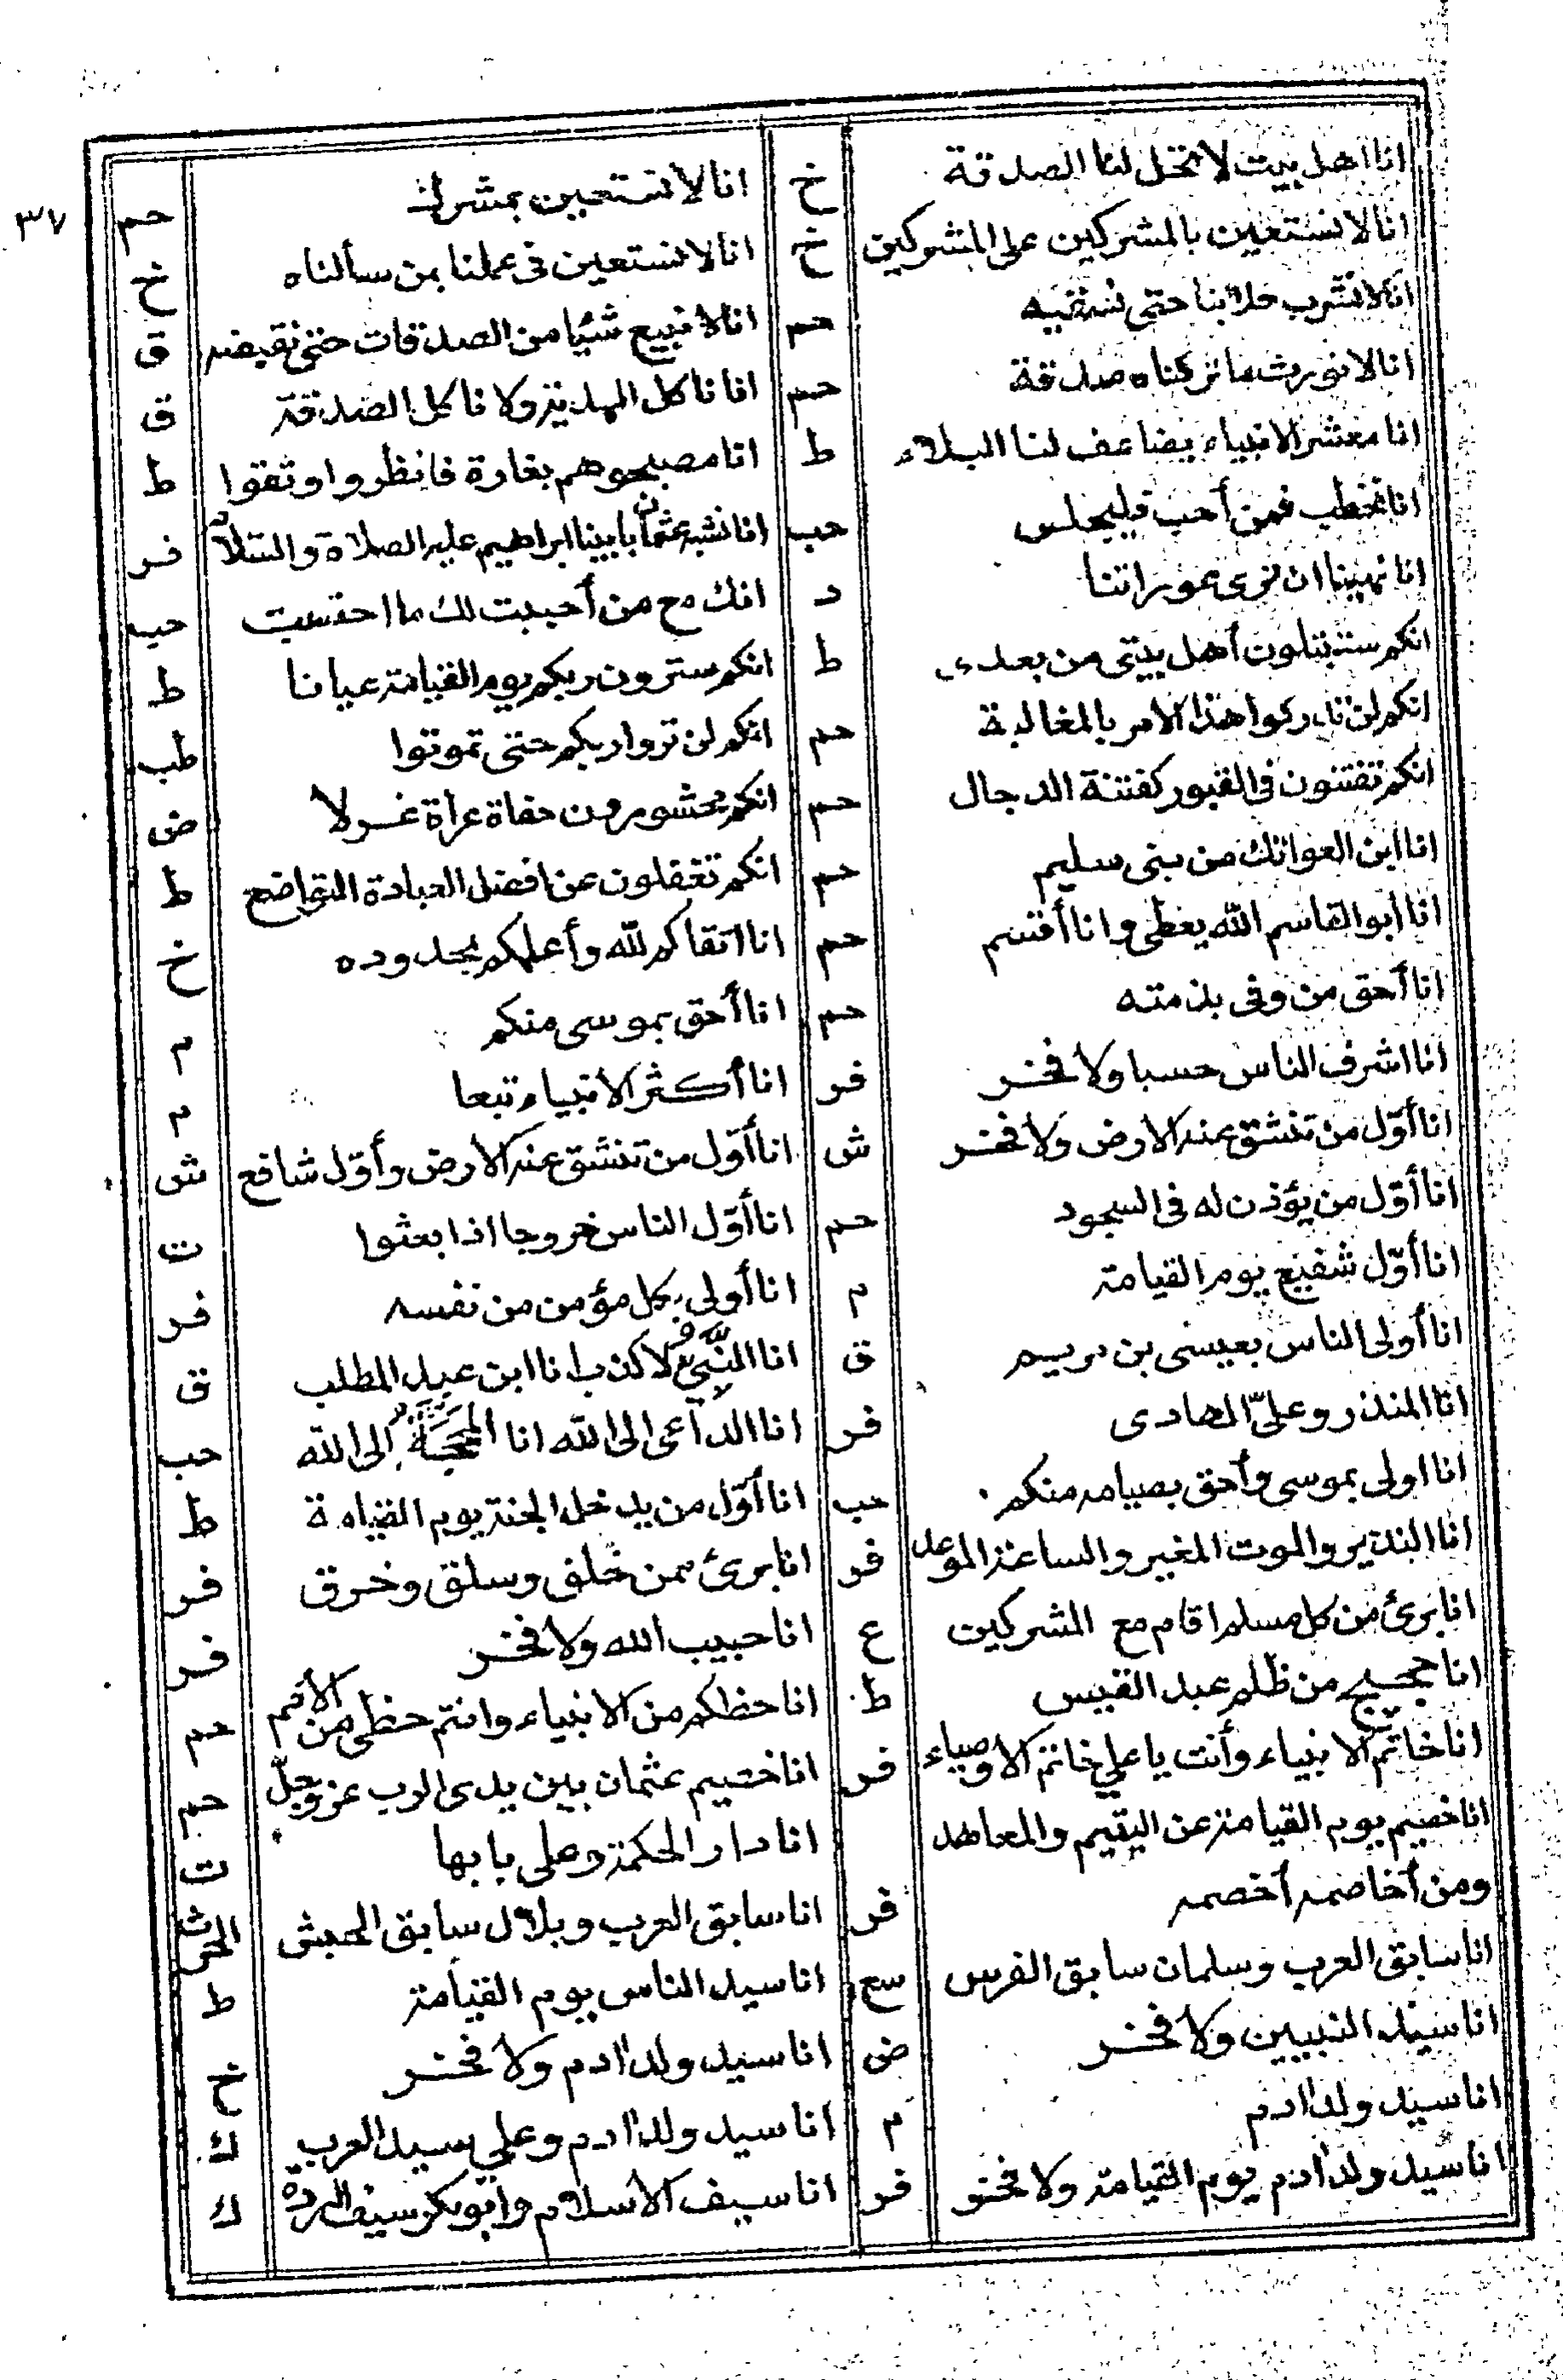 ٣٧
انا اهل بيت لا تحل لنا الصدقة خ انا لا نستعين بمشرك حم
انا لا نستعين بالمشركين على المشركين خ انا لا نستعين فى عملنا بمن سألناه خ
انا لا نشرب حم انا لا نبيع شيئا من الصدقات حتى نقبضه ق
انا لا نورث ما تركناه صدقة حم انا ناكل الهدية ولا ناكل الصدقة ق
انا معشر الانبياء يضاعف لنا البلاء ط انا مصبحوهم بغارة فانظروا وثقوا ط
انا نخطب فمن أحب فليجلس حب انا نشبه عثمان بابينا ابراهيم عليه الصلاة والسلام فر
انا نهينا ان نرى عوراتنا د انك مع من أحببت لك ما احتسبت حب
انكم ستبتلون أهل بيتى من بعدى ط انكم سترون ربكم يوم القيامة عيانا ط
انكم لن تدركوا هذا الامر بالمغالبة حم انكم لن تروا ربكم حتى تموتوا طب
انكم تفتنون فى القبور كفتنة الدجال حم انكم محشورون حفاة عراة غرلا ض
انا ابن العواتك من بنى سليم حم انكم تغفلون عن افضل العبادة التواضع ط
انا أبو القاسم الله يعطى وانا أقسم حم انا اتقاكم لله وأعلمكم بحدوده خ
انا أحق من وفى بذمته حم انا أحق بموسى منكم م
انا اشرف الناس حسبا ولا فخر فر انا أكثر الانبياء تبعا م
انا أوّل من تنشق عنه الارض ولا فخر ش انا أوّل من تنشق عنه الارض وأوّل شافع ش
انا أوّل من يؤذن له فى السجود حم انا أوّل الناس خروجا اذا بعثوا ت
انا أوّل شفيع يوم القيامة م انا أولى بكل مؤمن من نفسه فر
انا أولى الناس بعيسى بن مريم ق انا النبي لا كذب انا ابن عبد المطلب ق
انا المنذر وعلىّ الهادى فر انا الداعى الى الله انا المحجة الى الله حب
انا اولى بموسى وأحق بصيامه منكم حب انا أوّل من يدخل الجنة يوم القيامة ط
انا النذير والموت المغير والساعة الموعد فر انا برئ ممن حلق وسلق وخرق فر
انا برئ من كل مسلم اقام مع المشركين ع انا حبيب الله ولا فخر فر
انا حجيج من ظلم عبد القيس ط انا حظكم من الانبياء وانتم حظى من الأمم حم
انا خاتم الانبياء وأنت يا علي خاتم الاوصياء فر انا خصيم عثمان بين يدى الرب عز وجلّ حم
انا خصيم يوم القيامة عن اليتيم والمعاهد انا دار الحكمة وعلى بابها ت
ومن أخاصمه أخصمه فر انا سابق العرب وبلال سابق الحبش الحرث
انا سابق العرب وسلمان سابق الفرس سع انا سيد الناس يوم القيامة ط
انا سيد النبيين ولا فخر ض انا سيد ولد ادم ولا فخر خ
انا سيد ولد ادم م انا سيد ولد ادم وعلي سيد العرب ك
انا سيد ولد ادم يوم القيامة ولا فخر فر انا سيف الاسلام وابو بكر سيف الردة ك